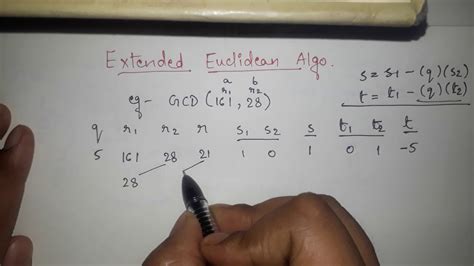 Extended Euclidean Algo.
s = s1 - (q)(s2)
t = t1 - (q)(t2)
a b
r1 r2
eg - GCD (161, 28)
q r1 r2 r s1 s2 s t1 t2 t
5 161 28 21 1 0 1 0 1 -5
28